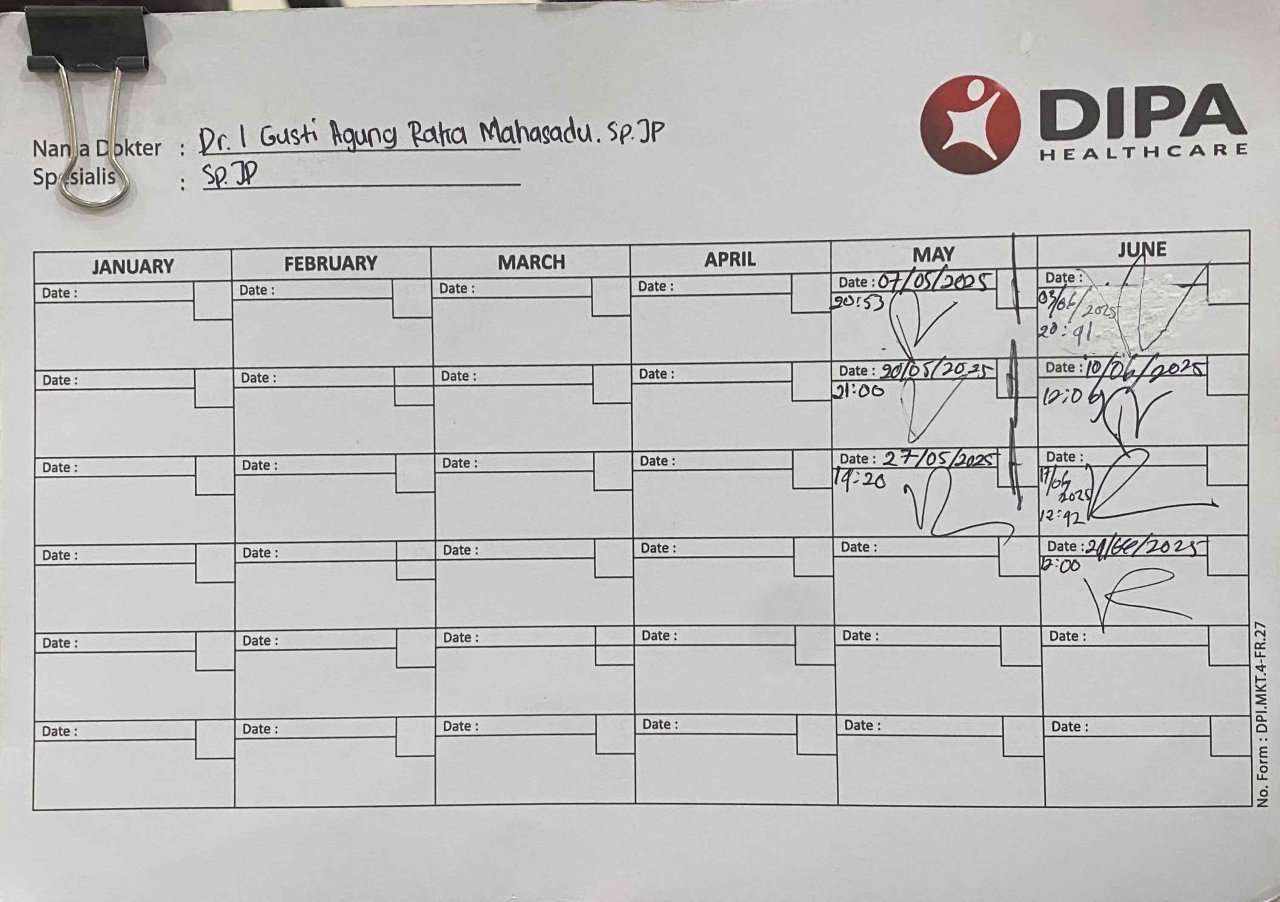 DIPA
HEALTHCARE
Nama Dokter : Dr. I Gusti Agung Raka Mahasadu. Sp.JP
Spesialis : Sp.JP
JANUARY FEBRUARY MARCH APRIL MAY JUNE
Date : Date : Date : Date : Date : 07/05/2025 Date :
20:53 03/06/2025
20:41
Date : Date : Date : Date : Date : 20/05/2025 Date : 10/06/2025
21:00 12:06
Date : Date : Date : Date : Date : 27/05/2025 Date :
19:20 17/06
2025
12:42
Date : Date : Date : Date : Date : Date :
12:00
Date : Date : Date : Date : Date : Date :
Date : Date : Date : Date : Date : Date :
No. Form : DPI.MKT.4-FR.27